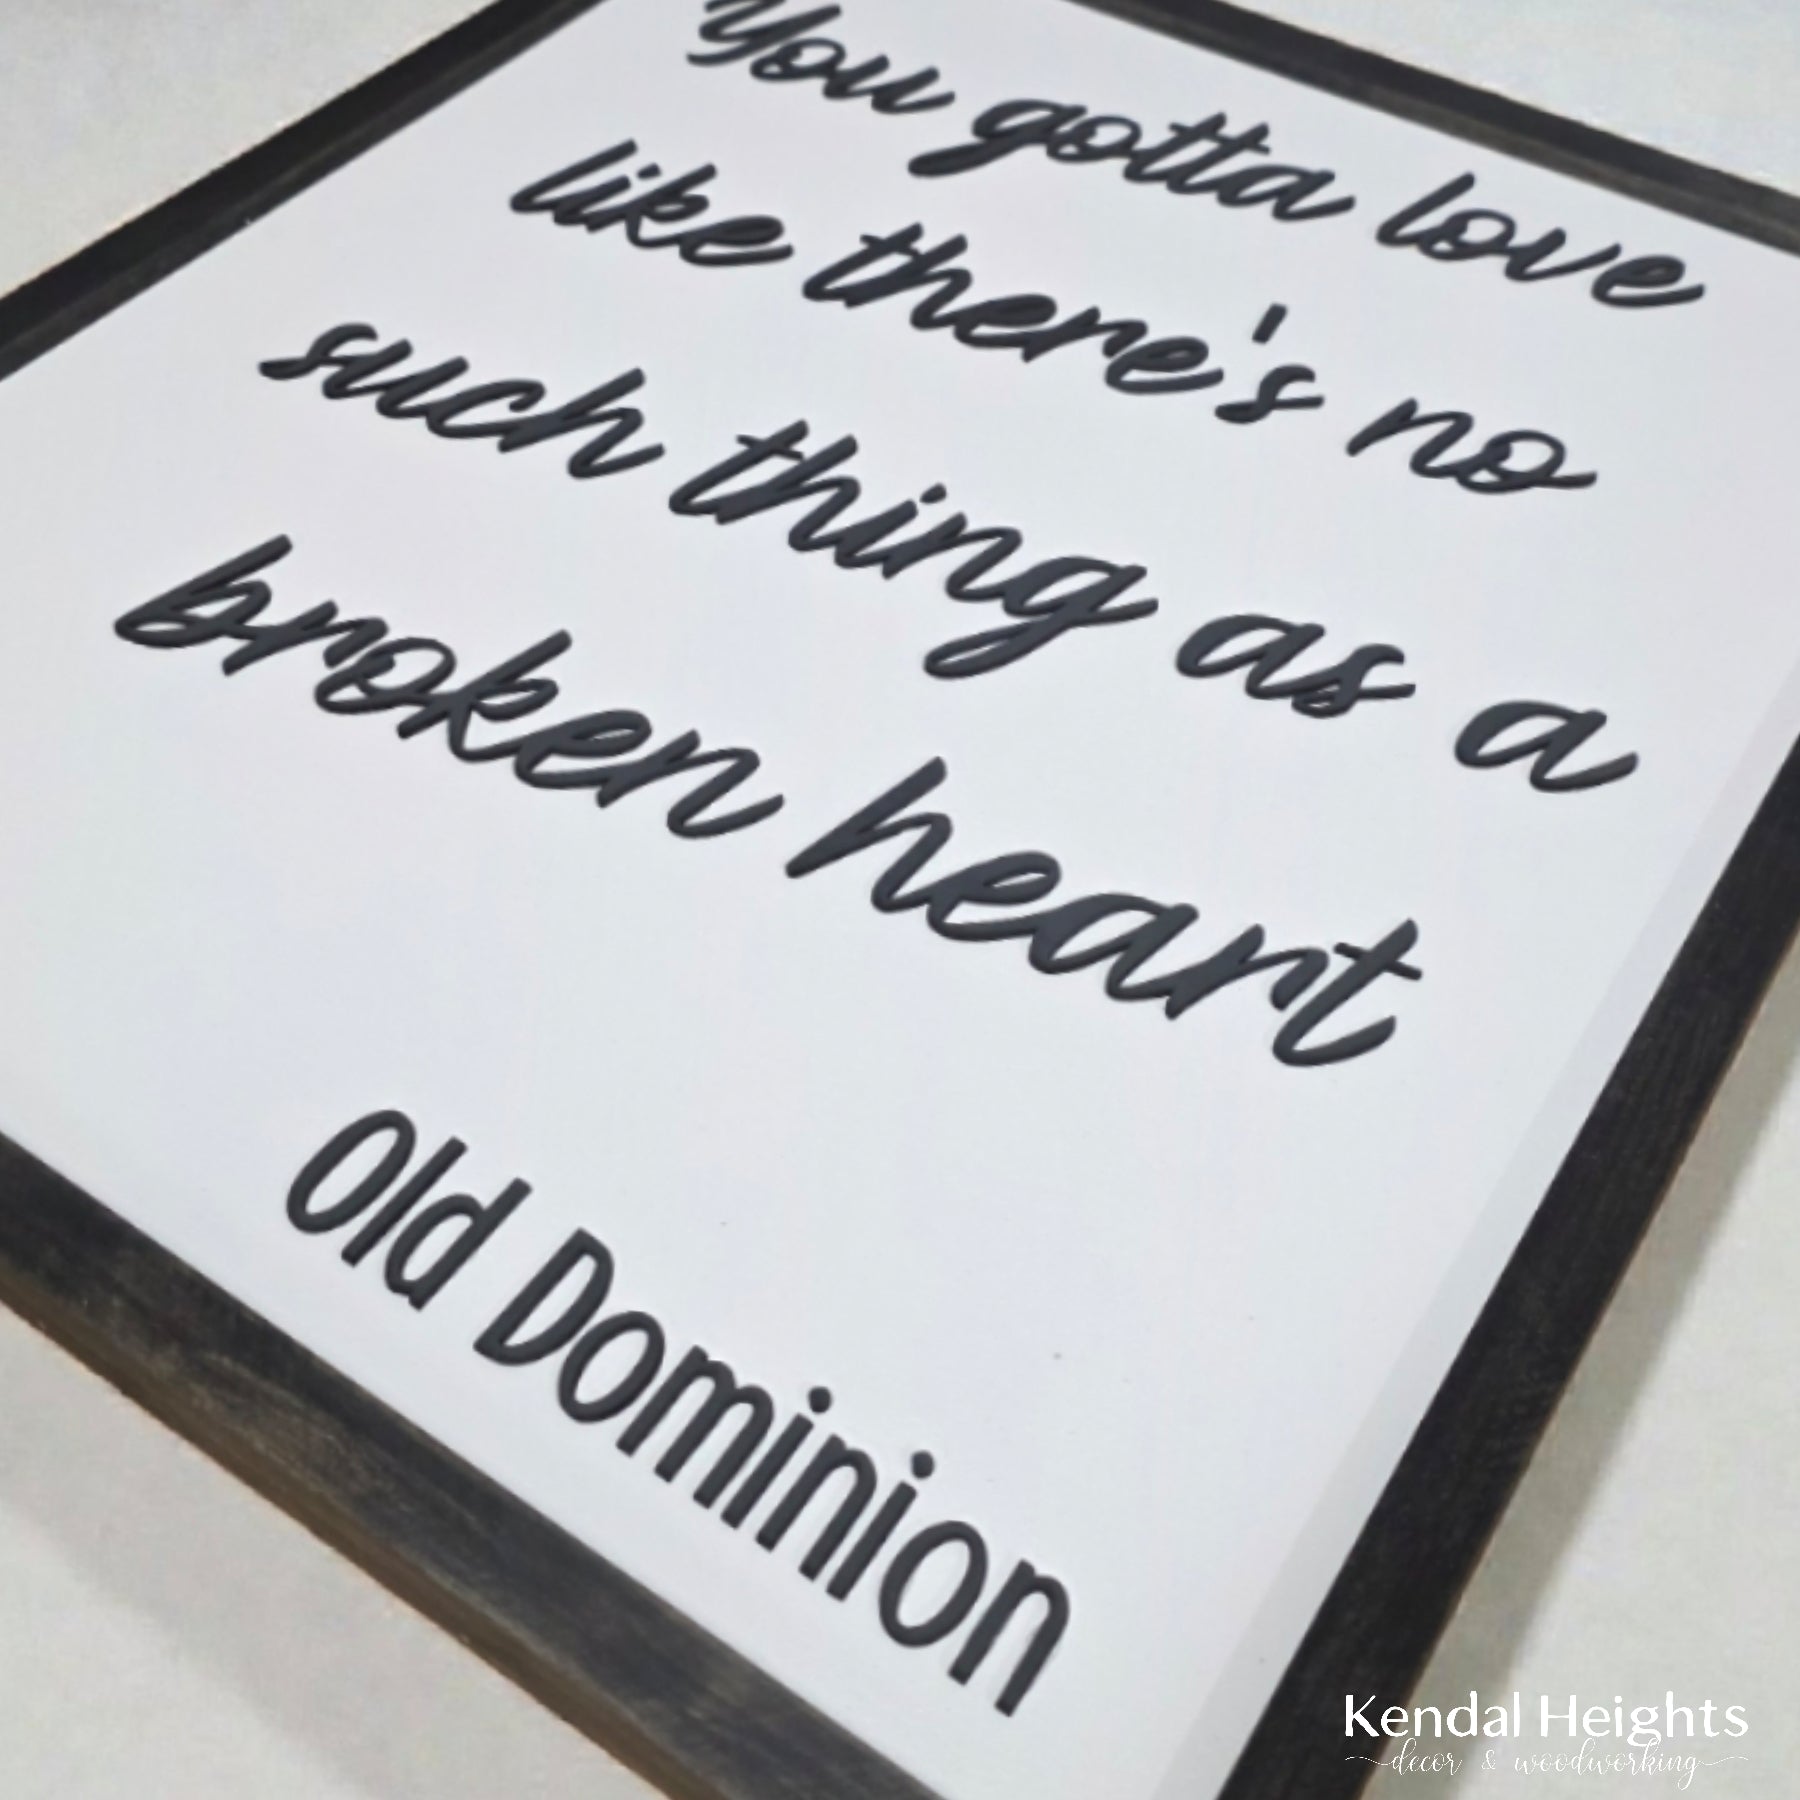 You gotta love
like there's no
such thing as a
broken heart
Old Dominion
Kendal Heights
decor & woodworking